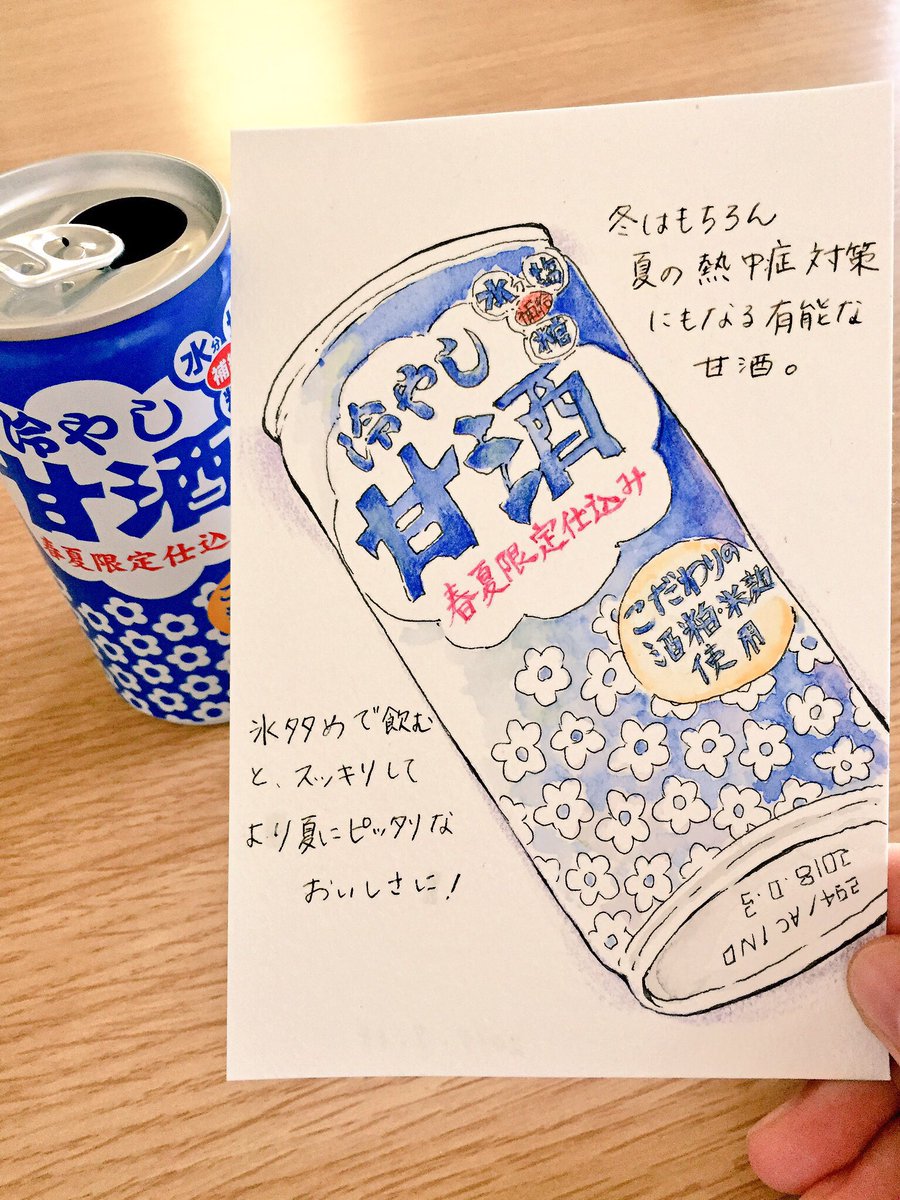 水分
補
冷やし
甘酒
春夏限定仕込
冬はもちろん
夏の熱中症対策
にもなる有能な
甘酒。
水分
塩
補給
米糖
冷やし
甘酒
春夏限定仕込み
こだわりの
酒粕・米麹
使用
氷多めで飲む
と、スッキリして
より夏にピッタリな
おいしさに!
2018.0.3
294/ACIND